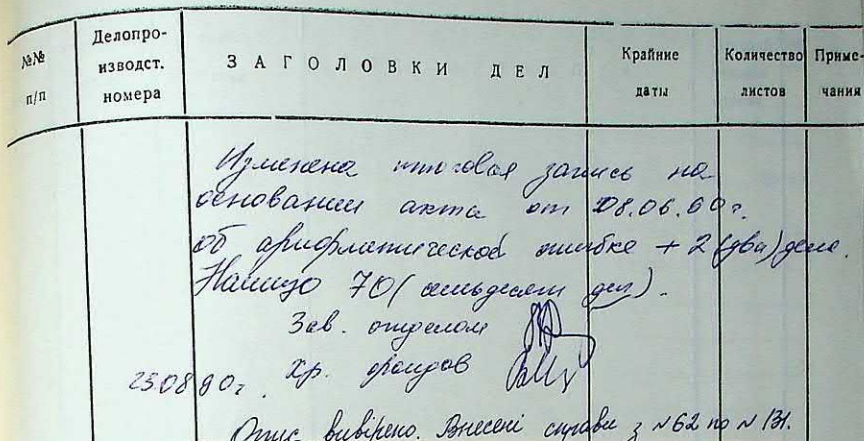 №№ п/п
Делопро-изводст. номера
ЗАГОЛОВКИ ДЕЛ
Крайние даты
Количество листов
Приме-чания
Изменена итоговая запись на
основании акта от 08.06.90г.
об арифметической ошибке + 2 (два) дела.
Налицо 70 (семьдесят дел).
Зав. отделом
23.08.90г. Хр. фондов
Опис вивірено. Внесені справи з №62 по №131.